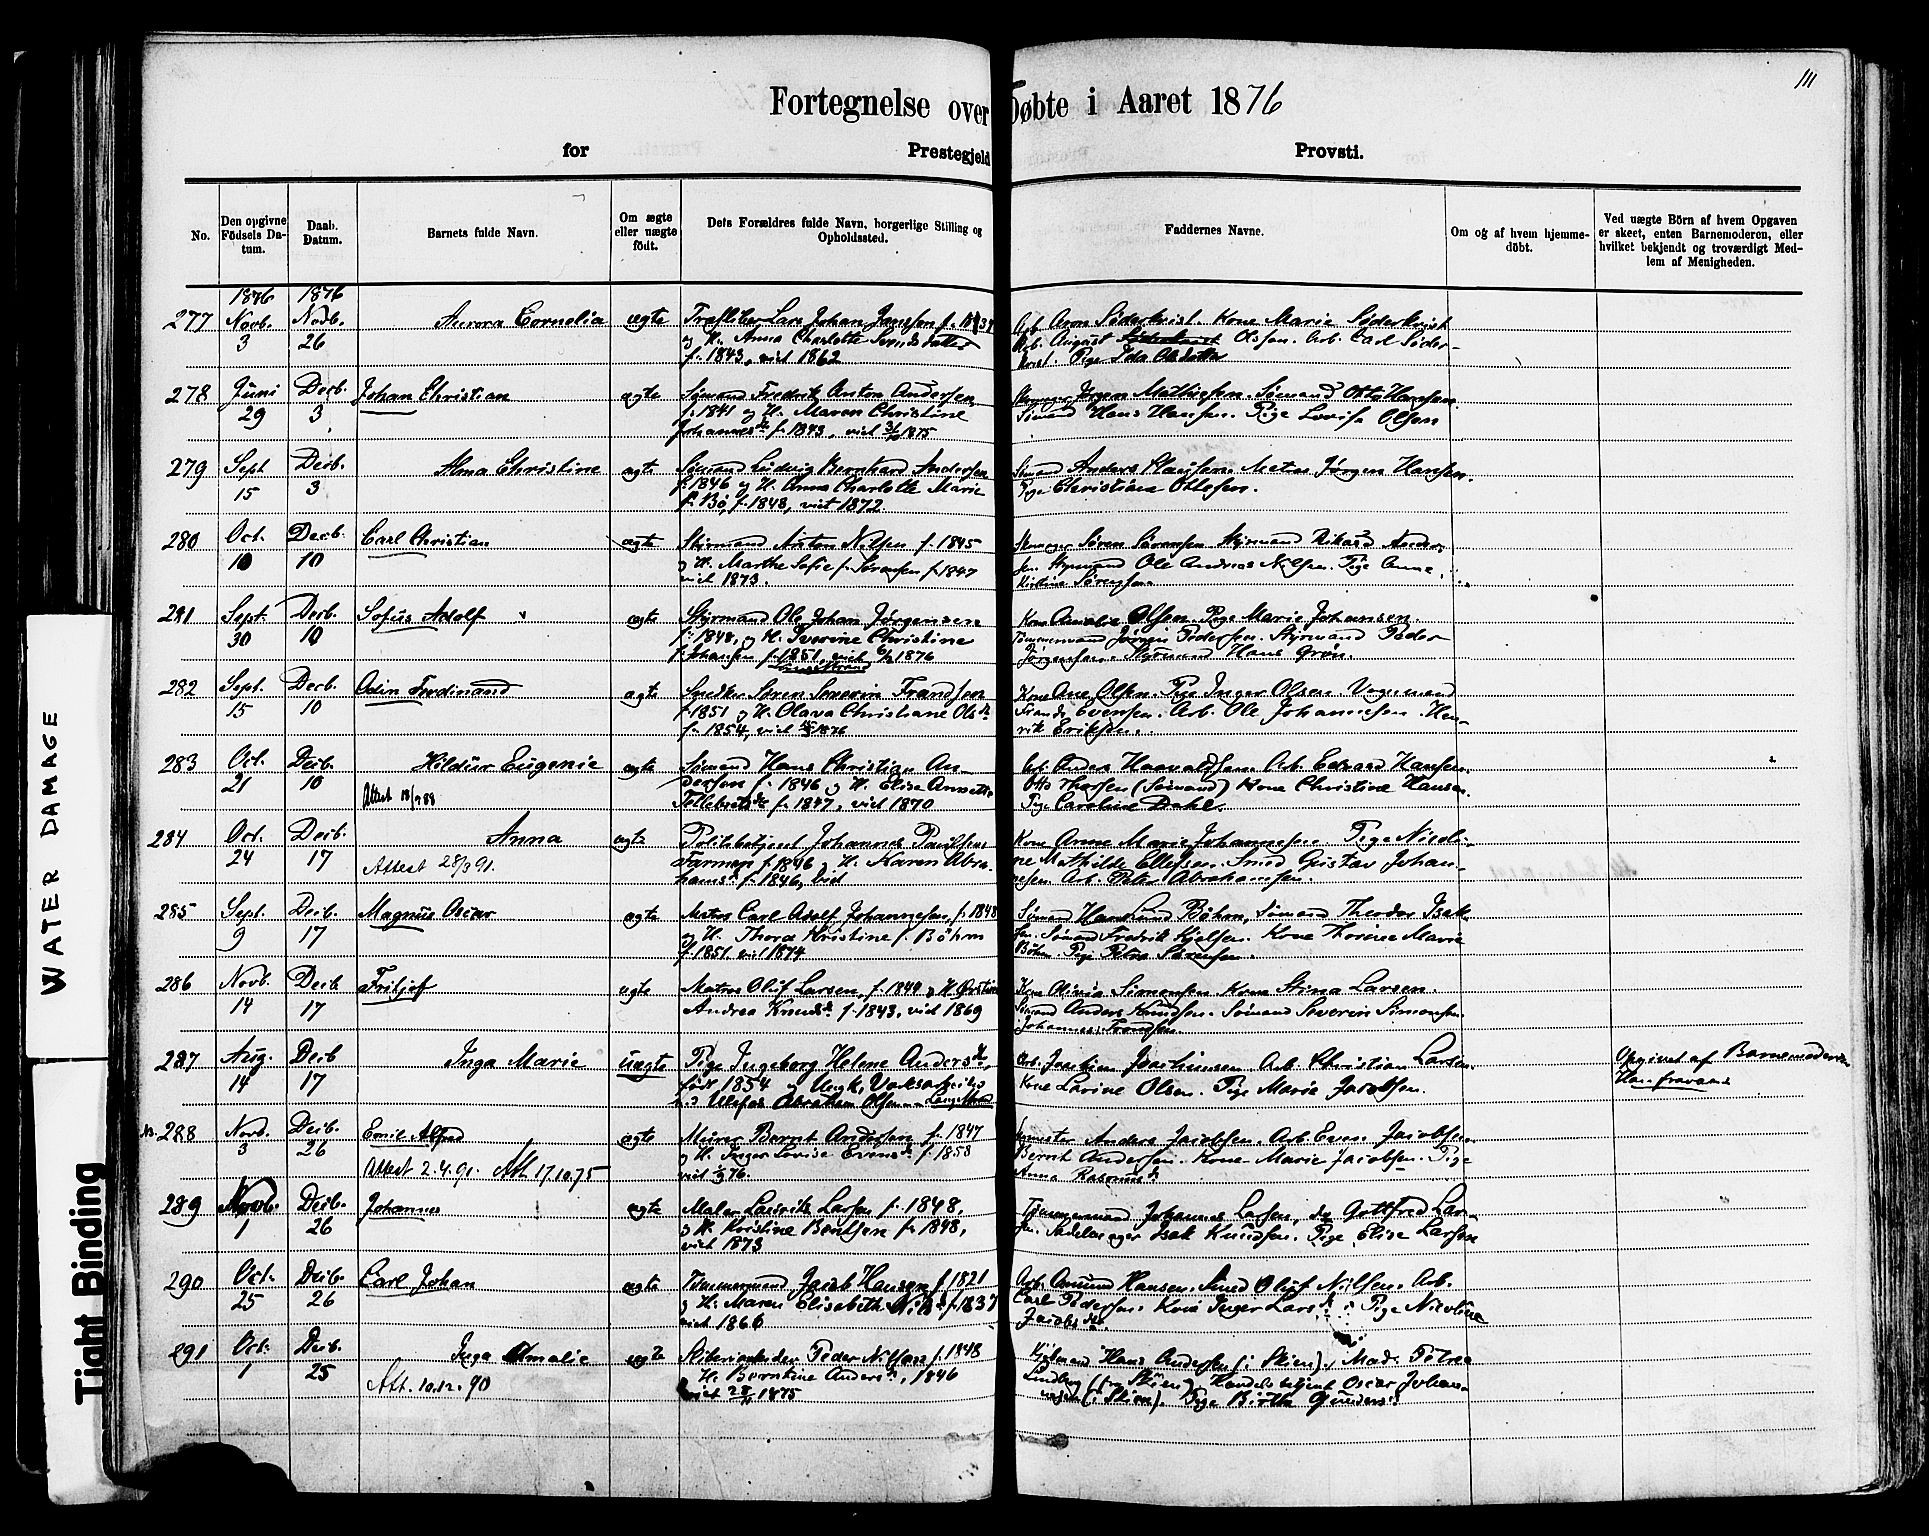 111
Fortegnelse over Døbte i Aaret 1876
for Prestegjeld Provsti.
No. Den opgivne Födsels Datum. Daab. Datum. Barnets fulde Navn. Om ægte eller uægte födt. Dets Forældres fulde Navn, borgerlige Stilling og Opholdssted. Faddernes Navne. Om og af hvem hjemmedöbt. Ved uægte Börn af hvem Opgaven er skeet, enten Barnemoderen, eller hvilket bekjendt og troværdigt Medlem af Menigheden.
1876 1876
277 Novb. Novb. Aurora Cornelia ægte Lars Johan Janssen f. Arb. Aron Söderkvist. Kone Marie Söderkvist
3 26 og H. Anna Charlotte Svendsdatter Arb. August Olssen. Arb. Carl Söder-
f. 1843, viet 1862 kvist. Pige Ida Olsdatter
278 Juni Decb. Johan Christian ægte Sømand Fredrik Anton Andersen Jørgen Mathissen. Sømand Otto Hansen.
29 3 f. 1841 og H. Maren Christine Sømand Hans Hansen. Pige Lovise Olsen
Johannesd. f. 1843, viet 1875
279 Sept Decb. Alma Christine ægte Sømand Ludvig Bernhard Andersen Sømand Anders Matros Jørgen Hansen.
15 3 f. 1846 og H. Anna Charlotte Marie Pige Christiane Ottesen.
f. Bö, f. 1848, viet 1872.
280 Oct. Decb. Carl Christian ægte Styrmand Anton Nilsen f. 1845 Søren Sørensen Styrmand Rikard Ander-
10 10 og H. Marthe Sofie f. Sørensen f. 1847 sen. Styrmand Ole Andreas Nilsen. Pige Anne
viet 1873. Kirstine Sørensen
281 Sept. Decb. Sofus Adolf ægte Styrmand Ole Johan Jørgensen Kone Amalie Olsen. Pige Marie Johansen.
30 10 f. 1848, og H. Severine Christine Tømmermand Jörgen Pedersen. Styrmand Peder
f. Johansen f. 1851, viet 1876 Jørgensen. Styrmand Hans Grøn.
282 Sept. Decb. Odin Ferdinand ægte Snedker Søren Severin Frandsen Kone Ane Olsen. Pige Inger Olsen. Vognmand
15 10 f. 1851 og H. Olava Christiane Olsd. Frands Evensen. Arb. Ole Johannesen. Hen-
f. 1854, viet 1876 rik Eriksen.
283 Oct. Decb. Hildur Eugenie ægte Sømand Hans Christian An- Arb. Anders Haavaldsen. Arb. Edvard Hansen.
21 10 Attest 18/9 88 dersen f. 1846 og H. Elise Annette Otto Thorsen (Sømand) Kone Christine Hansen.
Tollefsd. f. 1847, viet 1870 Pige Caroline Dahl.
284 Oct. Decb. Anna ægte Politibetjent Johannes Paulsen Kone Anne Marie Johannesen Pige Nicoli-
24 17 Attest 28/3 91. Farmen f. 1846 og H. Karen Abra- ne Mathilde Ellefsen. Smed Gustav Johan-
hamsd. f. 1846, viet nesen Arb. Peter Abrahamsen.
285 Sept. Decb. Magnus Oscar ægte Matros Carl Adolf Johannesen, f. 1848 Sømand Hans Lund Böhm, Sømand Theodor Isak-
9 17 og H. Thora Kristine f. Böhm sen. Sømand Fredrik Kjelsen. Kone Thorine Marie
f. 1851. viet 1874 Böhm. Pige Petra Sørensen.
286 Novb. Decb Fritjof ægte Matros Oluf Larsen, f. 1844 og H. Kone Olivia Simonsen Kone Stina Larsen.
14 17 Andrea Knudsd. f. 1843, viet 1869 Sømand Anders Knudsen. Sømand Severin Simonsen.
Johannes Trondsen.
287 Aug. Decb Inga Marie uægte Pige Ingeborg Helene Andersd., Arb. Joachim Joachimsen Arb. Christian Larsen. Opgivet af Barnemoderen
14 17 født 1854 og Ungk. Verksarbeider Kone Lovine Olsen. Pige Marie Jacobsen.
Ulefos Abraham Olsen
288 Novb. Decb. Emil Alfred ægte Murer Bernt Andersen f. 1847 Anders Jacobsen. Arb. Even Jacobsen.
3 26 Attest 2.4.91. Att. 17.10.75 og H. Inger Lovise Evensd. f. 1858 Bernt Andersen. Kone Marie Jacobsen. Pige
viet 76. Anna Rasmusd.
289 Novb. Decb. Johannes ægte Maler Lauritz Larsen f. 1848, Tømmermand Johannes Larsen, do Gottfred Lar-
1 26 og H. Kristine Bentsen f. 1848, sen. Sadelmager Isak Knudsen. Pige Elise Larsen
viet 1873
290 Oct. Decb. Carl Johan ægte Tømmermand Jacob Hansen f. 1821 Arb. Amund Hansen. Smed Oluf Nilsen. Arb.
25 26 og H. Maren Elisabeth Nilsd. f. 1837 Carl Pedersen. Kone Inger Larsd. Pige Nicoline
viet 1866 Jacobsdtr
291 Oct. Decb. Inga Amalie ægte Peder Nilsen f. 1848 Hans Andersen (i Skien). Mad. Petrea
1 25 Att. 10.12.90 H. Berntine Andersd., 1846 Lindberg (fra Skien) Handelsbetjent Oscar Johan-
viet 1875 nesen (i Skien). Pige Birthe Gundersd.
WATER DAMAGE
Tight Binding